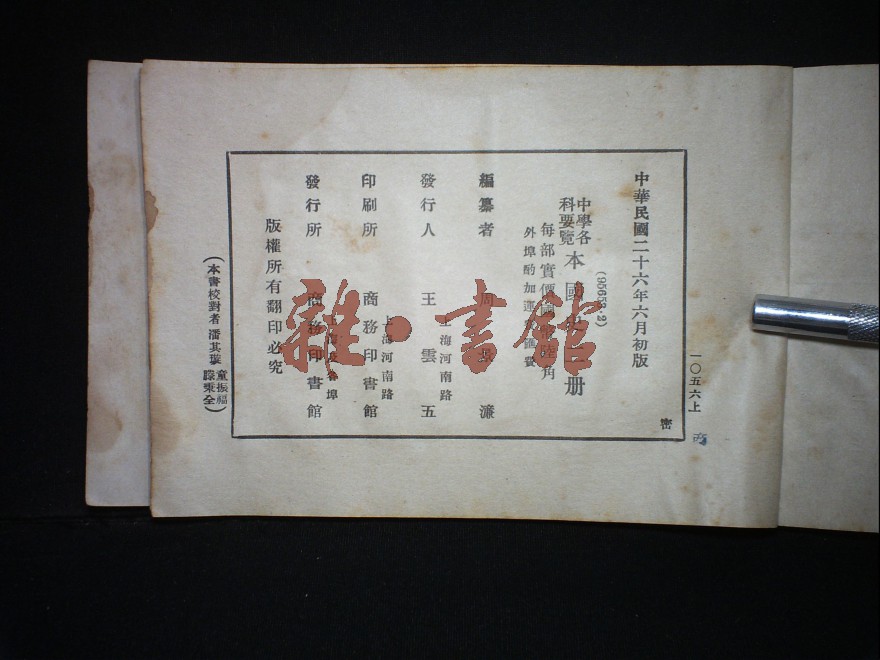 中華民國二十六年六月初版
(95653.2)
中學各科要覽本國
册
每部實價國
角
外埠酌加運
匯費
編纂者
周
濂
發行人
王雲五
上海河南路
印刷所
商務印書館
上海河南路
發行所
商務印書館
埠
版權所有翻印必究
(本書校對者潘其璇
童振福
滕秉全)
一〇五六上
密
雜·書館